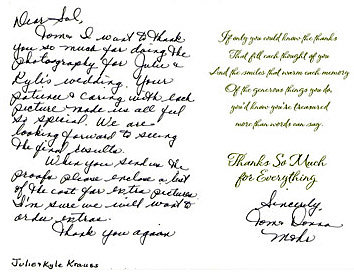 Dear Sal,
Tom & I want to thank
you so much for doing the
photography for Julie &
Kyle's wedding. Your
patience & caring with each
picture made us all feel
so special. We are
looking forward to seeing
the final results.
When you send us the
proofs please enclose a list
of the cost for extra pictures
I'm sure we will want to
order extras.
Thank you again
Julie & Kyle Krauss
If only you could know the thanks
That fill each thought of you
And the smiles that warm each memory
Of the generous things you do,
you'd know you're treasured
more than words can say.
Thanks So Much
for Everything
Sincerely,
Tom & Donna